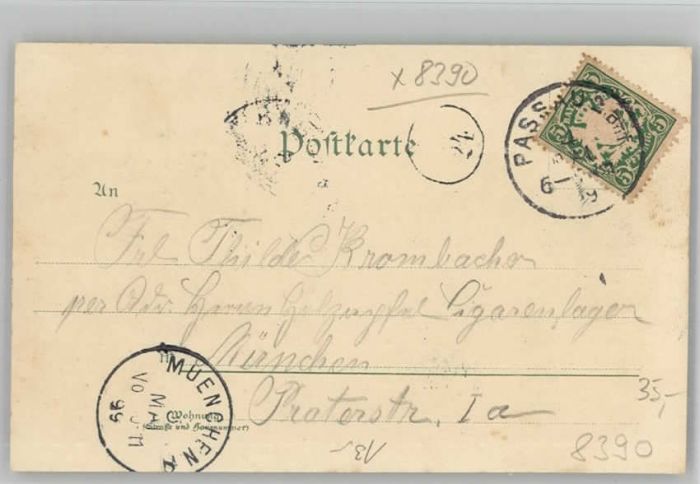 x 8390
Postkarte
24
PASSAU
5
5
5
An
Frl Thilde Krombacher
per Adr. Herrn Holzapfel Cigarenlager
München
MUENCHEN
MAI
VO 11
99
Wohnung
(Straße und Hausnummer)
Praterstr. Ia
35,-
13,-
8390